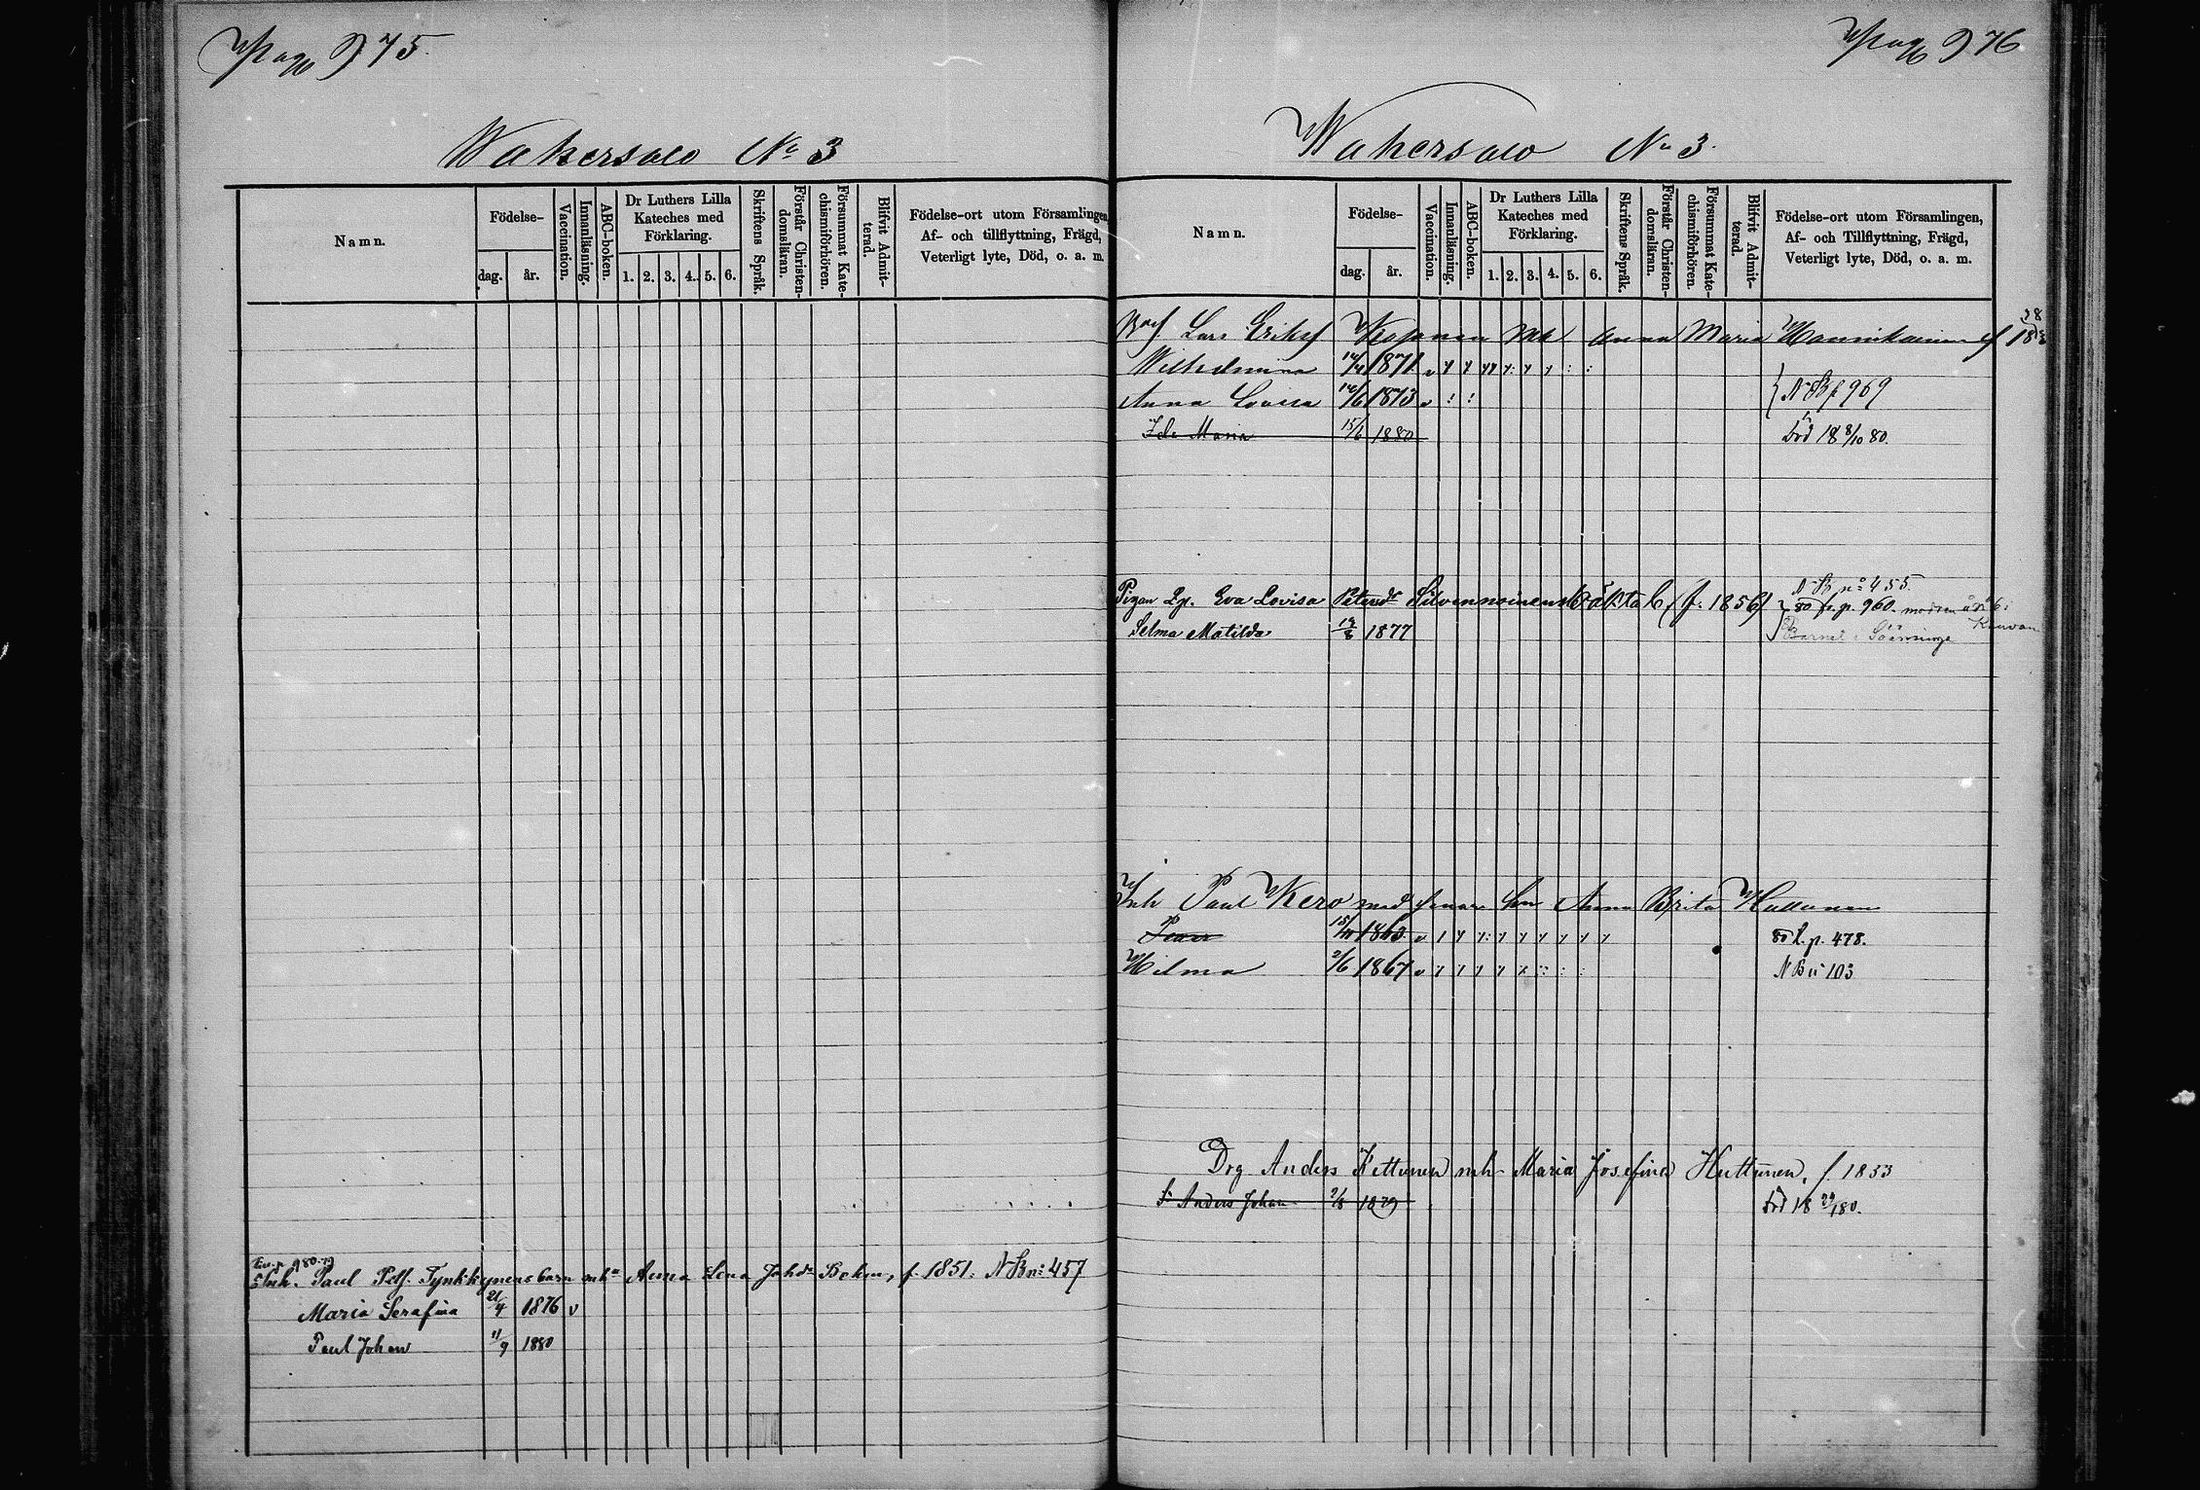 Pag 975.
Wakersalo No 3
Namn.
Födelse-
dag.
år.
Vaccination.
Innanläsning.
ABC-boken.
Dr Luthers Lilla
Kateches med
Förklaring.
1. 2. 3. 4. 5. 6.
Skriftens Språk.
Förstår Christen-
domsläran.
Försummat Kate-
chismiförhören.
Blifvit Admit-
terad.
Födelse-ort utom Församlingen,
Af- och tillflyttning, Frägd,
Veterligt lyte, Död, o. a. m.
Inh. Paul Tynkkynens barn mh Anna Lena Johdr f. 1851. NB n: 457
Maria Serafina 21/4 1876 v
Paul Johan 11/9 1880
Pag 976
Wakersalo No 3.
Namn.
Födelse-
dag.
år.
Vaccination.
Innanläsning.
ABC-boken.
Dr Luthers Lilla
Kateches med
Förklaring.
1. 2. 3. 4. 5. 6.
Skriftens Språk.
Förstår Christen-
domsläran.
Försummat Kate-
chismiförhören.
Blifvit Admit-
terad.
Födelse-ort utom Församlingen,
Af- och Tillflyttning, Frägd,
Veterligt lyte, Död, o. a. m.
Lars Eriksf Anna Maria Hannikainen
Wilhelmina 1871
Anna Lovisa 14/6 1873 v NB p 969
Ida Maria 15/6 1880 död 18 8/10 80.
NB n:o 455
Pigan Eva Lovisa Petersdr Silvennoinens oäkta b. (f. 1856) p. 960.
Selma Matilda 1877 Barnet i Sääminge
Inh Paul Kero med Anna Brita
1863 v p. 478.
Hilma 2/6 1867 v NB n 103
Drg Anders Kettunen mh Maria Josefina Huttunen, f. 1853
S. Anders Johan 2/8 1879 död 18